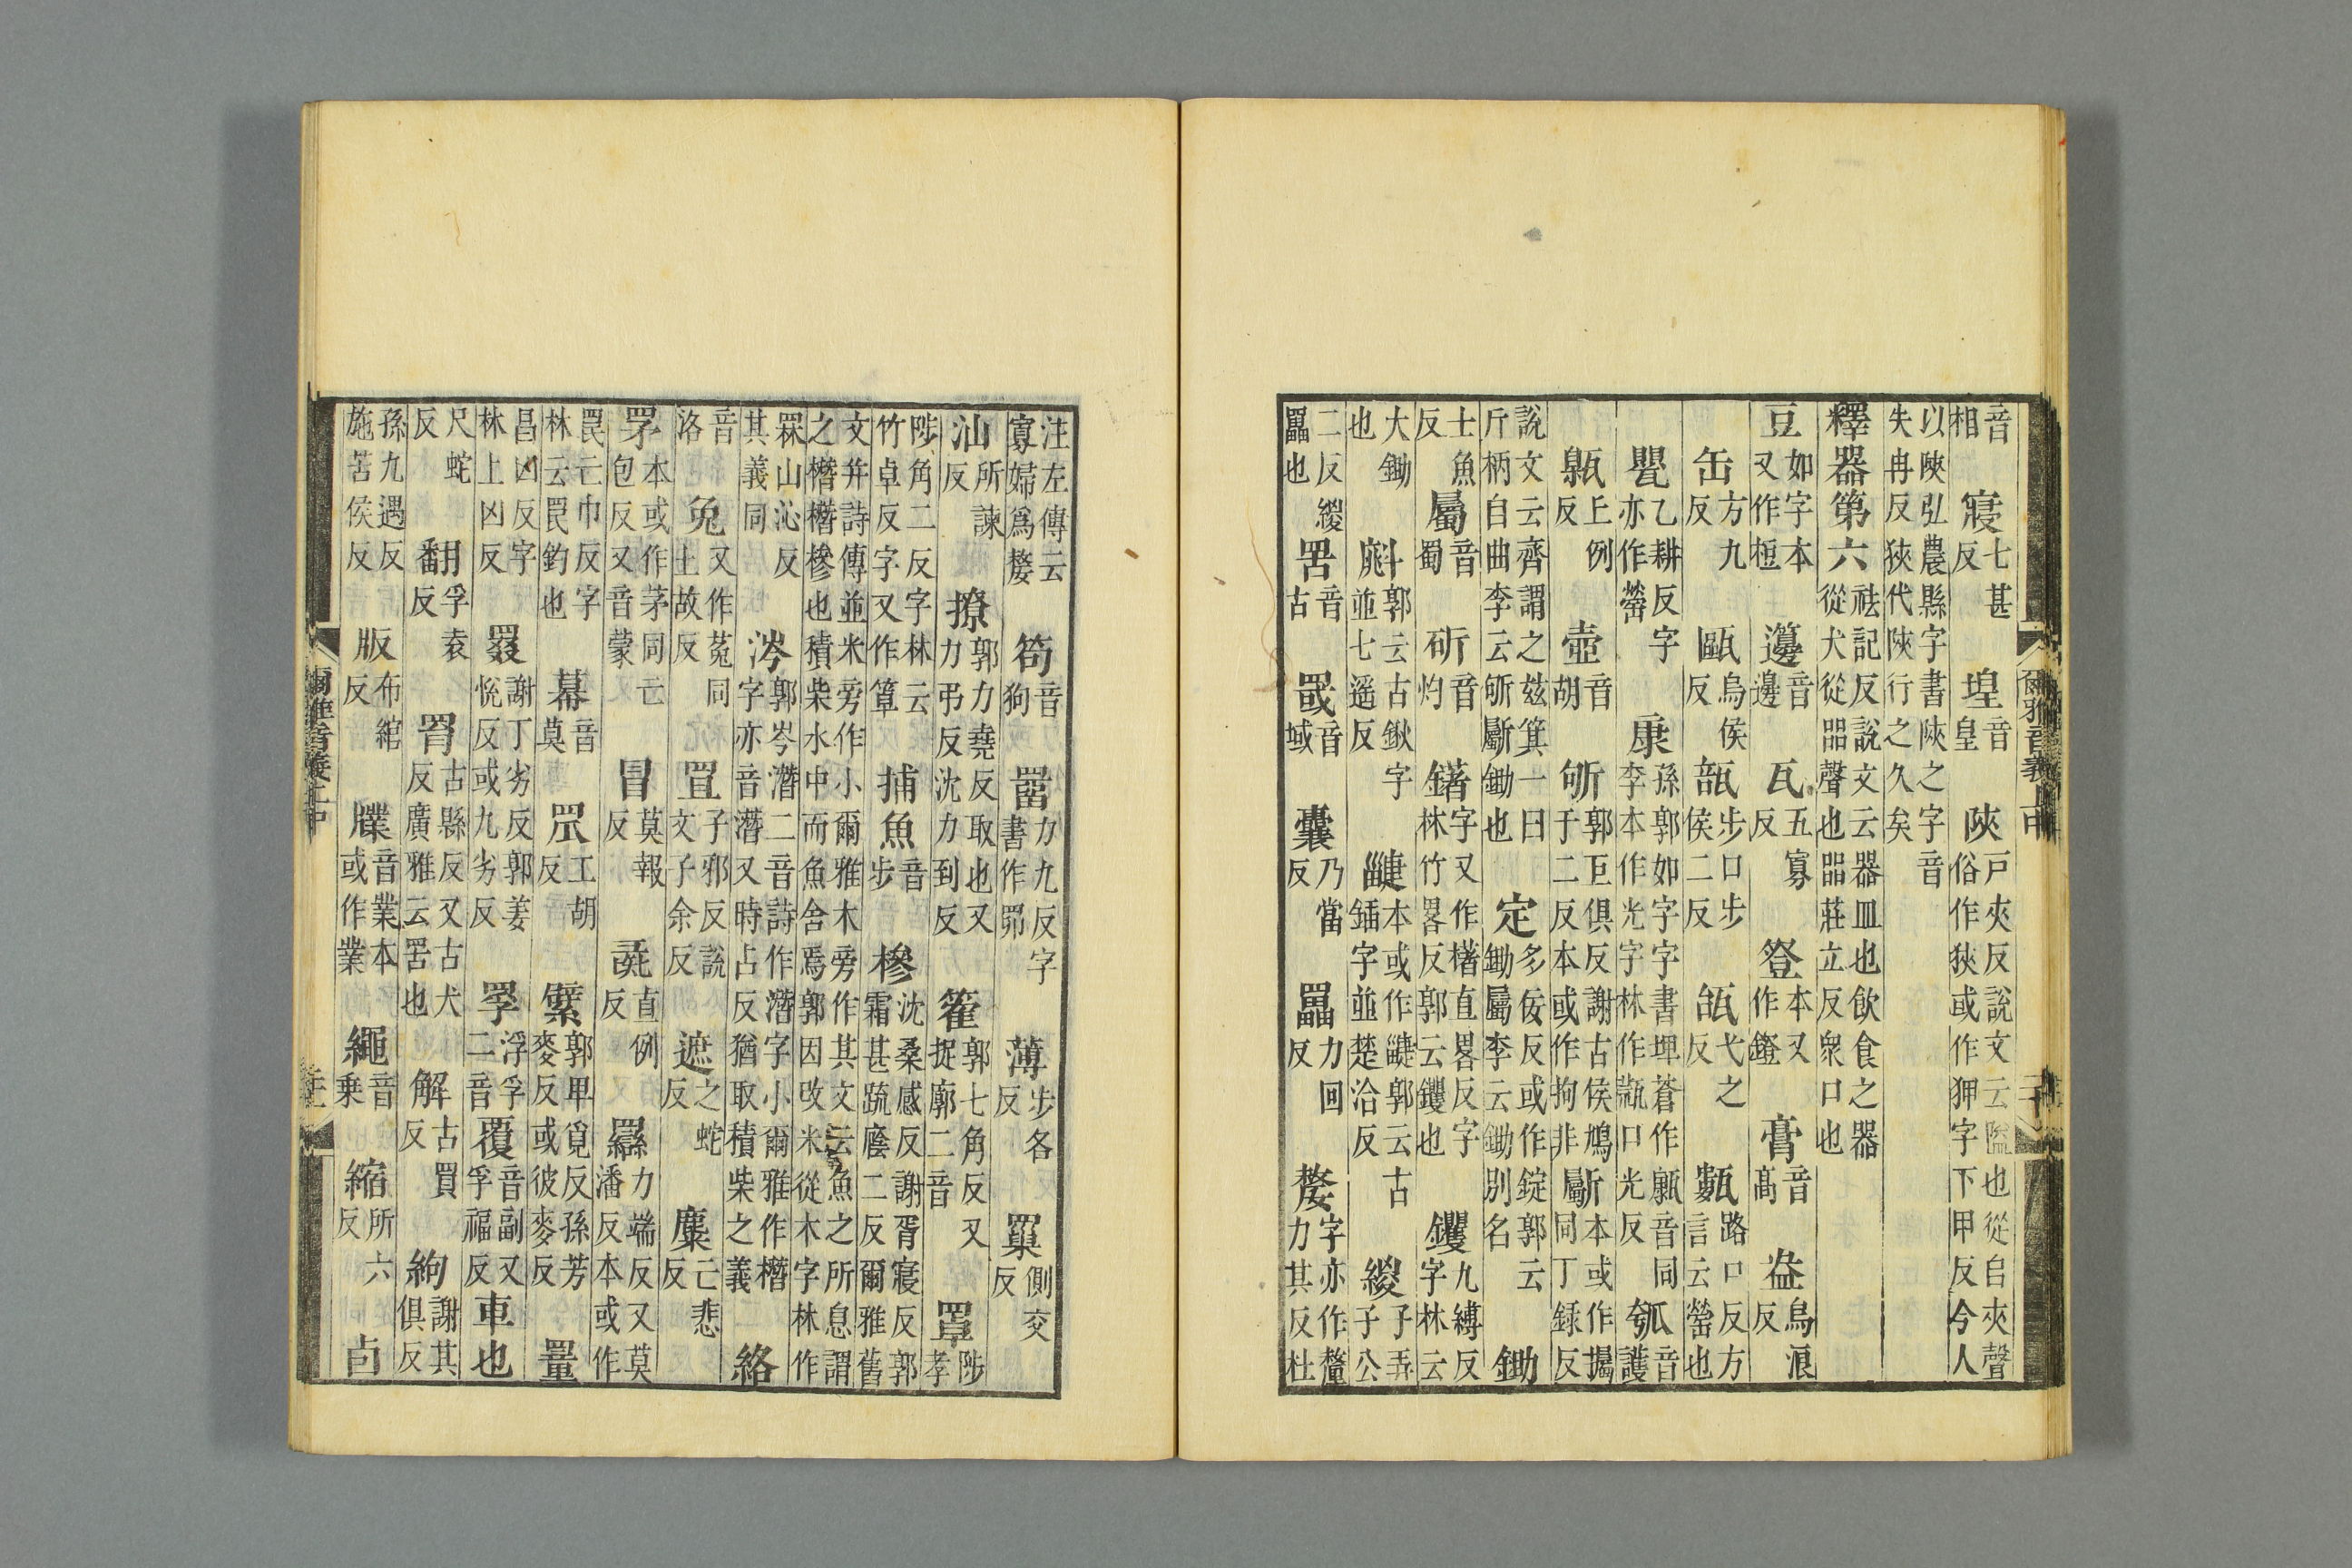 音相　寢七甚反　堭音皇　陜戶夾反說文云隘也從𨸏夾聲俗作狹或作狎字下甲反今人
以陜弘農縣字書陜之字音失冉反狹代陜行之久矣
釋器第六袪記反說文云器皿也飲食之器從犬從㗊聲也㗊莊立反衆口也
豆如字本又作梪　籩音邊　瓦五寡反　登本又作鐙　膏音髙　盎烏浪反
缶方九反　甌烏侯反　瓿步口步侯二反　瓵弋之反　㼾路口反方言云罃也
甖乙耕反字亦作罃　康孫郭如字字書埤蒼作㼹音同李本作光字林作口光反　瓠音護
甈上例反　壺音胡　斪郭巨俱反謝古侯鳩于二反本或作拘非　斸本或作㔉同丁録反
說文云齊謂之玆箕一曰斤柄自曲李云斪斸鋤也　定多佞反或作錠郭云鋤屬李云鋤別名　鋤
士魚反　屬音蜀　斫音灼　鐯字又作櫡直畧反字林竹畧反郭云钁也　钁九縛反字林云
大鋤也　𣂁郭云古鍬字並七遥反　疀本或作疀郭云古鍤字並楚洽反　緵子弄子公
二反緵罍也　罟音古　罭音域　囊乃當反　罍力回反　嫠字亦作釐力其反杜
注左傳云寡婦爲嫠　笱音狗　罶力九反字書作罶　薄步各反　罺側交反
汕所諫反　撩郭力堯反取也又力弔反沈力到反　籗郭七角反又捉廓二音　罩陟孝
陟角二反字林云竹卓反字又作䈇　捕魚音步　槮沈桑感反謝胥寢反郭霜甚疏廕二反爾雅舊
文并詩傳並米旁作小爾雅木旁作其文云魚之所息謂之橬橬槮也積柴水中而魚舍焉郭因改米從木字林作
罧山沁反其義同　涔郭岑潛二音詩作潛字小爾雅作橬字亦音潛又時占反猶取積柴之義　絡
音洛　兔又作菟同土故反　罝子邪反說文子余反　遮之蛇反　麋亡悲反
罞本或作茅同亡包反又音蒙　冒莫報反　彘直例反　羉力端反又莫潘反本或作
罠亡巾反字林云罠釣也　幕音莫　罛工胡反　繴郭卑覓反孫芳麥反或彼麥反　罿
昌凶反字林上凶反　罬謝丁劣反郭姜悅反或九劣反　罦浮孚二音　覆音副又孚福反　車也
尺蛇反　翻孚袁反　罥古縣反又古犬反廣雅云罟也　解古買反　絇謝其俱反
孫九遇反施苦侯反　版布綰反　𤗼音業本或作業　繩音乗　縮所六反　卣
爾雅音義上中